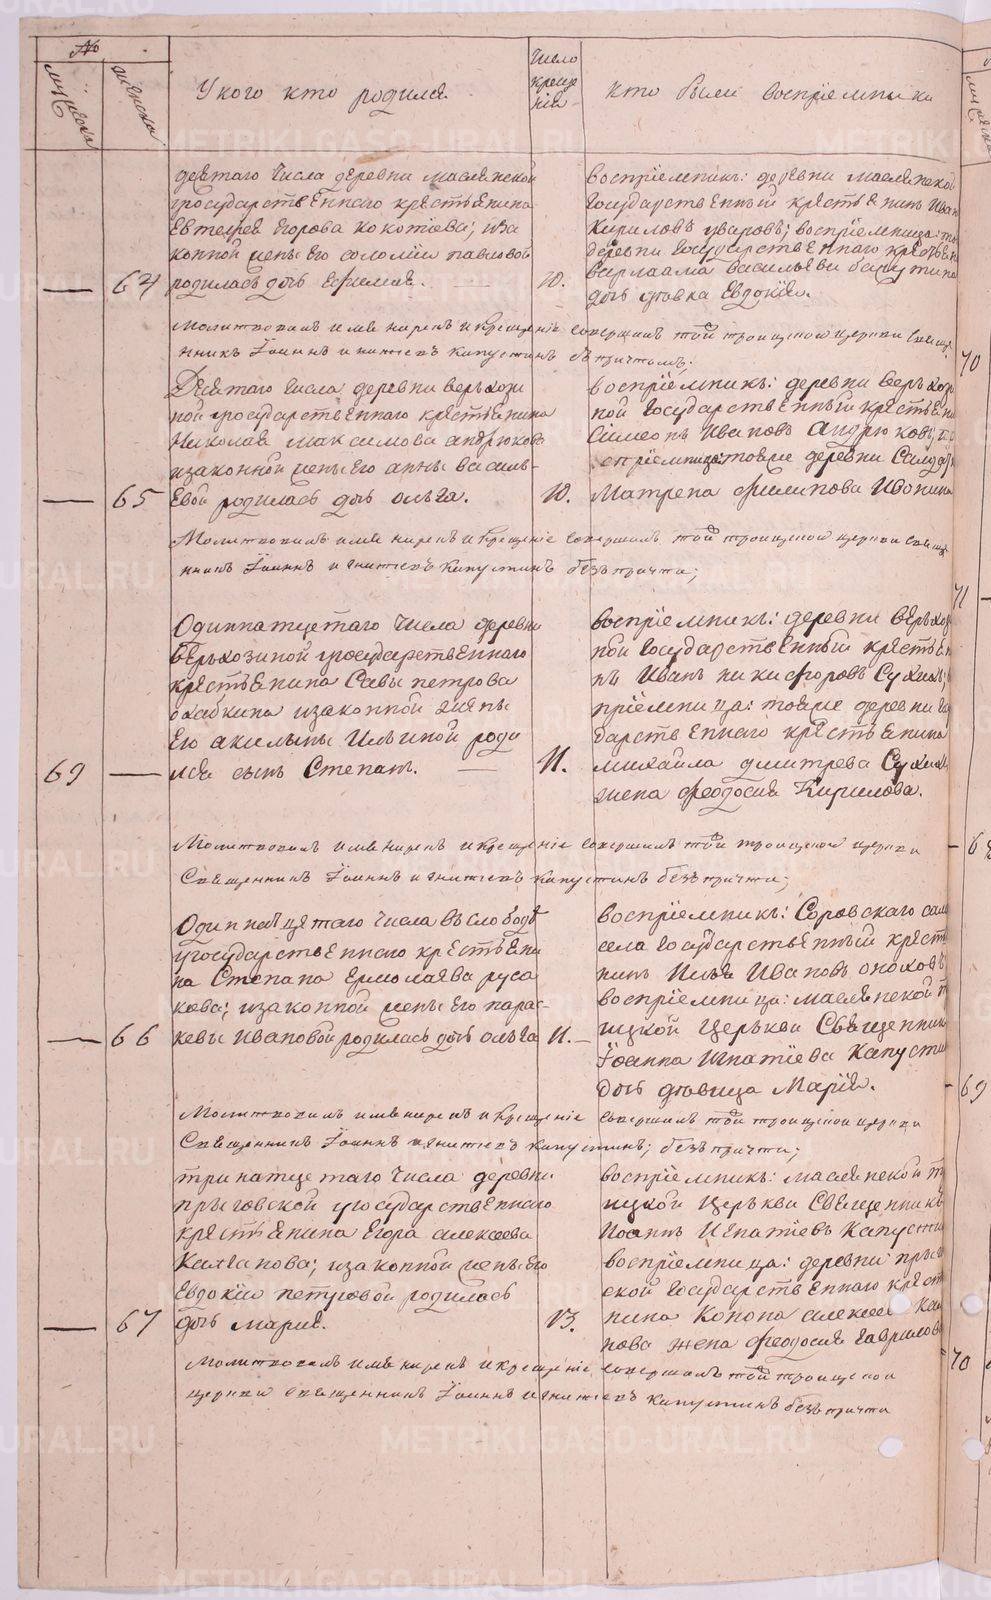 №
мужеска
женска
У кого кто родился.
Число
креще
нія
Кто были воспріемники
девятаго числа деревни маслянской
государственнаго крестьянина
Евтефея Егорова Кокотеева; иза
конной жены его соломіи павловой
64 родилась дочь Ефимія. 10.
воспріемникъ: деревни маслянской
государственный крестьянинъ Иванъ
Кириловъ уваровъ; воспріемница:
деревни государственнаго
варлаама васильева
дочь девка Евдокія.
Молитвовалъ имя нарекъ и крещеніе совершилъ той троицкой церкви свяще
нникъ Іоаннъ игнатіевъ капустинъ безъ причта;
Десятаго числа деревни верхози
ной государственнаго крестьянина
Николая максимова андрюкова
изаконной жены его анны василь-
65 евой родилась дочь ольга. 10.
воспріемникъ: деревни верхози
ной государственный крестьяни
Симеонъ Ивановъ Андрюковъ;
спріемница: тояже деревни
Матрена филипова Ивонина
Молитвовалъ имя нарекъ и крещеніе совершилъ той троицкой церкви свяще
нникъ Іоаннъ игнатіевъ капустинъ безъ причта;
Одиннатцетаго числа деревни
верхозиной государственнаго
крестьянина Савы петрова
изаконной жены
его акилины Ильиной роди
69 лся сынъ Степанъ. 11.
воспріемникъ: деревни верхози
ной государственный крестьяни
нъ Иванъ никифоровъ
пріемница: тояже деревни госу
дарственнаго крестьянина
михайла дмитрева
жена феодосія Кирилова.
Молитвовалъ имя нарекъ и крещеніе совершилъ той троицкой церкви
Священникъ Іоаннъ игнатіевъ капустинъ безъ причта;
Одиннатцетаго числа въ слободе
государственнаго крестьяни
на Степана Ермолаева руса
кова; изаконной жены его парас-
66 кевы ивановой родилась дочь ольга 11.
воспріемникъ: Соровскаго
села государственный кресть
нинъ Илья Ивановъ
воспріемница: маслянской т
ицкой Церькви Священника
Іоанна Игнатіева Капусти
дочь девица Марія.
Молитвовалъ имя нарекъ и крещеніе совершилъ той троицкой церкви
Священникъ Іоаннъ игнатіевъ капустинъ; безъ причта;
тринатцетаго числа деревни
прыговской государственнаго
крестьянина Егора алексеева
изаконной жены его
Евдокіи петровой родилась
67 дочь марія. 13.
воспріемникъ: маслянской тр
ицкой Церькви Священникъ
Иоаннъ Игнатіевъ Капустин
воспріемница: деревни прыгов
ской государственнаго крест
нина Конона алексее
нова жена феодосія гаврилова
Молитвовалъ имя нарекъ и крещеніе совершилъ той троицкой
церкви священникъ Іоаннъ игнатіевъ капустинъ безъ причта
70
71
68
69
70
METRIKI.GASO-URAL.RU